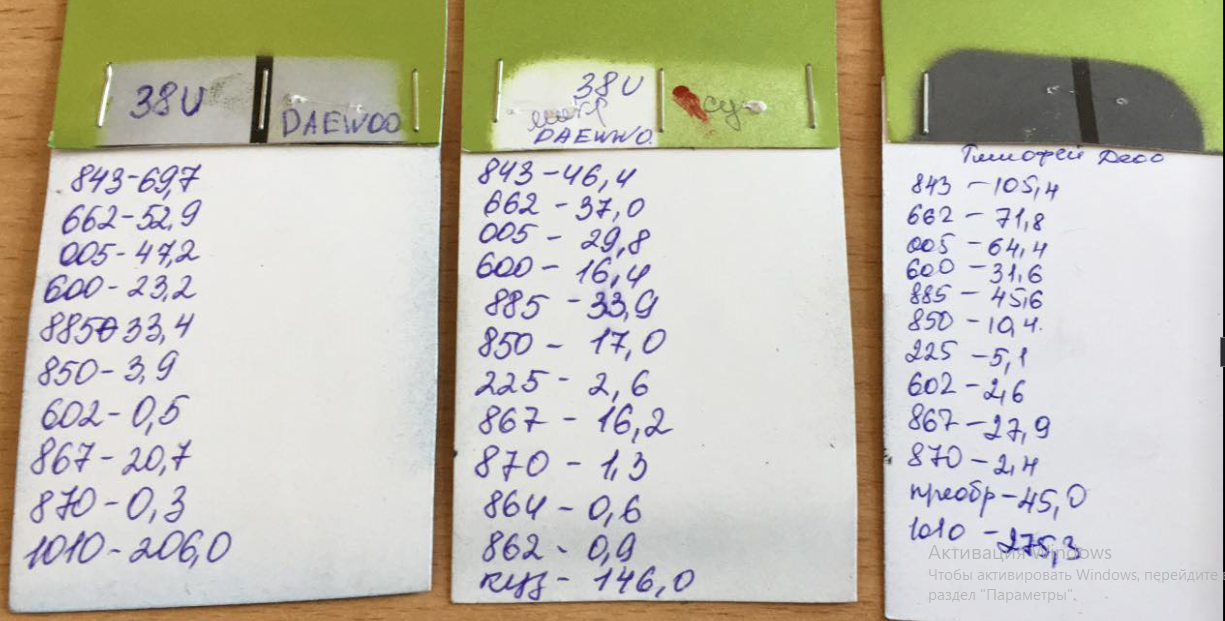 38U
DAEWOO
843-69,7
662-52,9
005-47,2
600-23,2
885-33,4
850-3,9
602-0,5
867-20,7
870-0,3
1010-206,0
38U
DAEWOO.
су
843-46,4
662-37,0
005-29,8
600-16,4
885-33,9
850-17,0
225-2,6
867-16,2
870-1,3
864-0,6
862-0,9
куз-146,0
Тимофей Деоо
843-105,4
662-71,8
005-64,4
600-31,6
885-45,6
850-10,4.
225-5,1
602-2,6
867-27,9
870-2,4
преобр-45,0
1010-275,3
Активация Windows
Чтобы активировать Windows, перейдите в
раздел "Параметры".